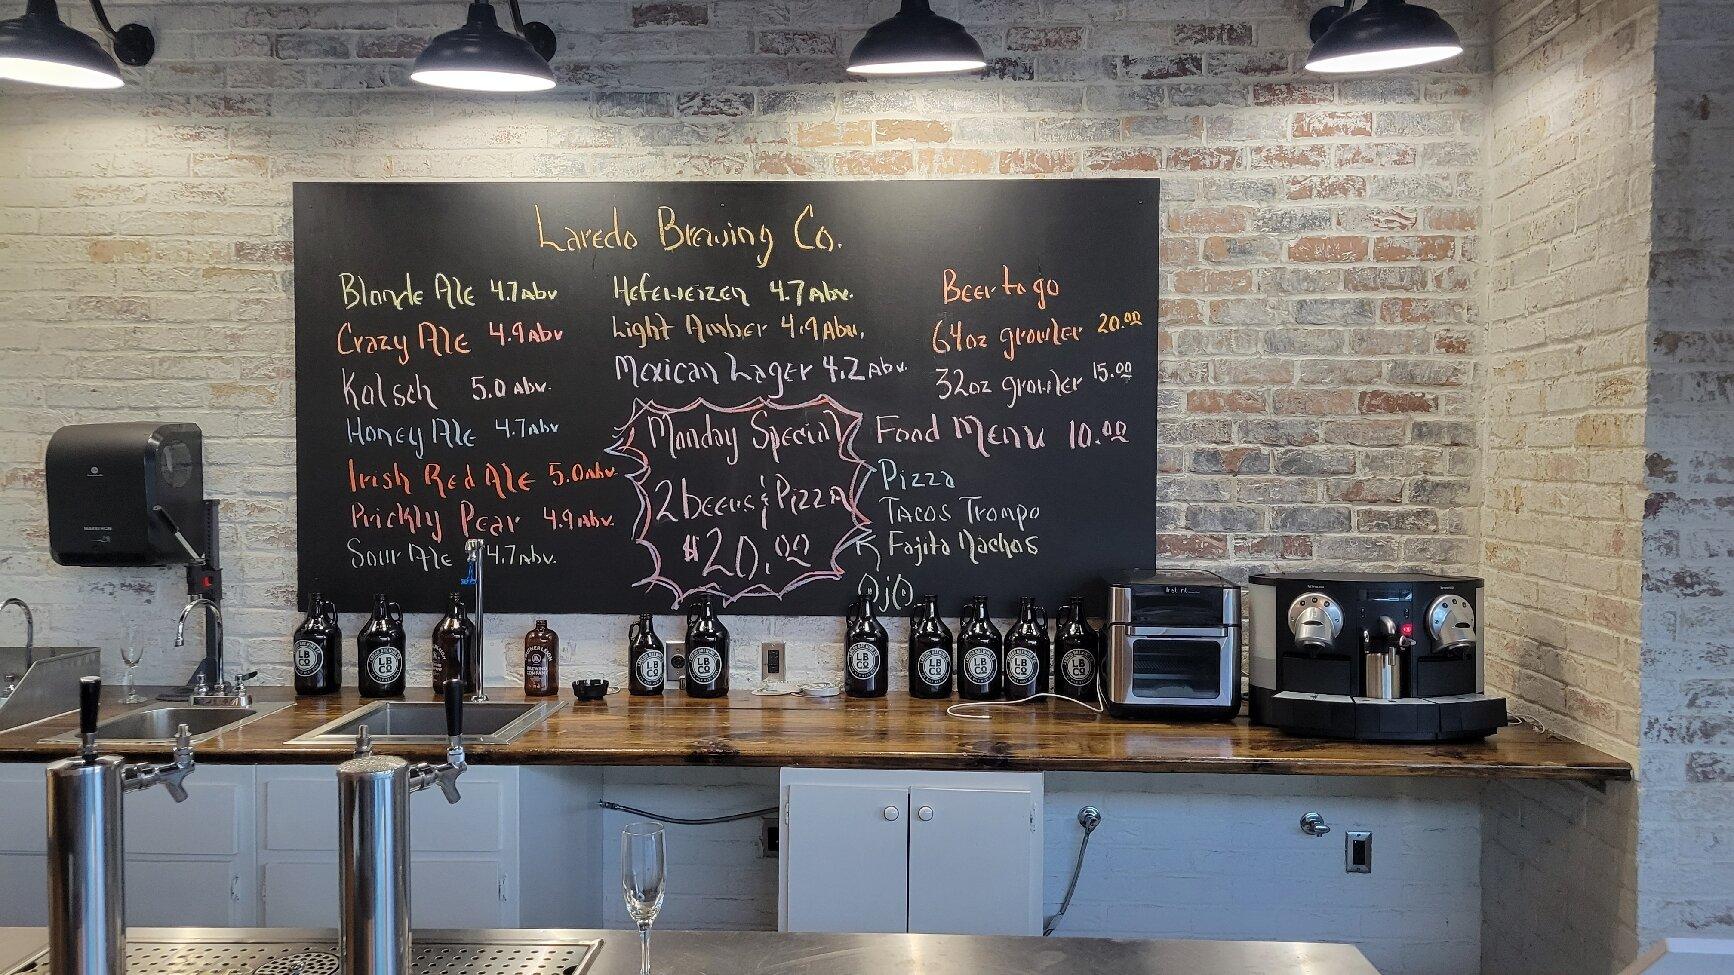 Laredo Brewing Co.
Blonde Ale 4.7 Abv
Crazy Ale 4.9 Abv
Kolsch 5.0 Abv.
Honey Ale 4.7 Abv
Irish Red Ale 5.0 Abv.
Prickly Pear 4.9 Abv.
Sour Ale 4.7 Abv.
Hefeweizen 4.7 Abv.
Light Amber 4.9 Abv.
Mexican Lager 4.2 Abv.
Monday Special
2 beers & Pizza
$20.00
Beer to go
64oz growler 20.00
32oz growler 15.00
Food Menu 10.00
Pizza
Tacos Trompo
Fajita Nachos
OjO
LB
CO
LB
CO
LB
CO
LB
CO
LB
CO
BREWING
COMPANY